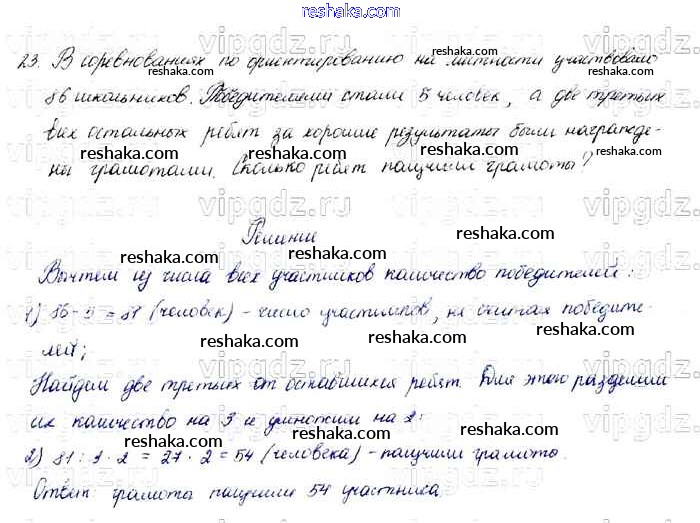 reshaka.com
23. В соревнованиях по ориентированию на местности участвовало
86 школьников. Победителями стали 5 человек, а две третьих
всех остальных ребят за хорошие результаты были награжде-
ны грамотами. Сколько ребят получили грамоты?
Решение
Вычтем из числа всех участников количество победителей:
1) 86 - 5 = 81 (человек) - число участников, не считая победите-
лей;
Найдем две третьих от оставшихся ребят. Для этого разделим
их количество на 3 и умножим на 2:
2) 81 : 3 · 2 = 27 · 2 = 54 (человека) - получили грамоты.
Ответ: грамоты получили 54 участника.